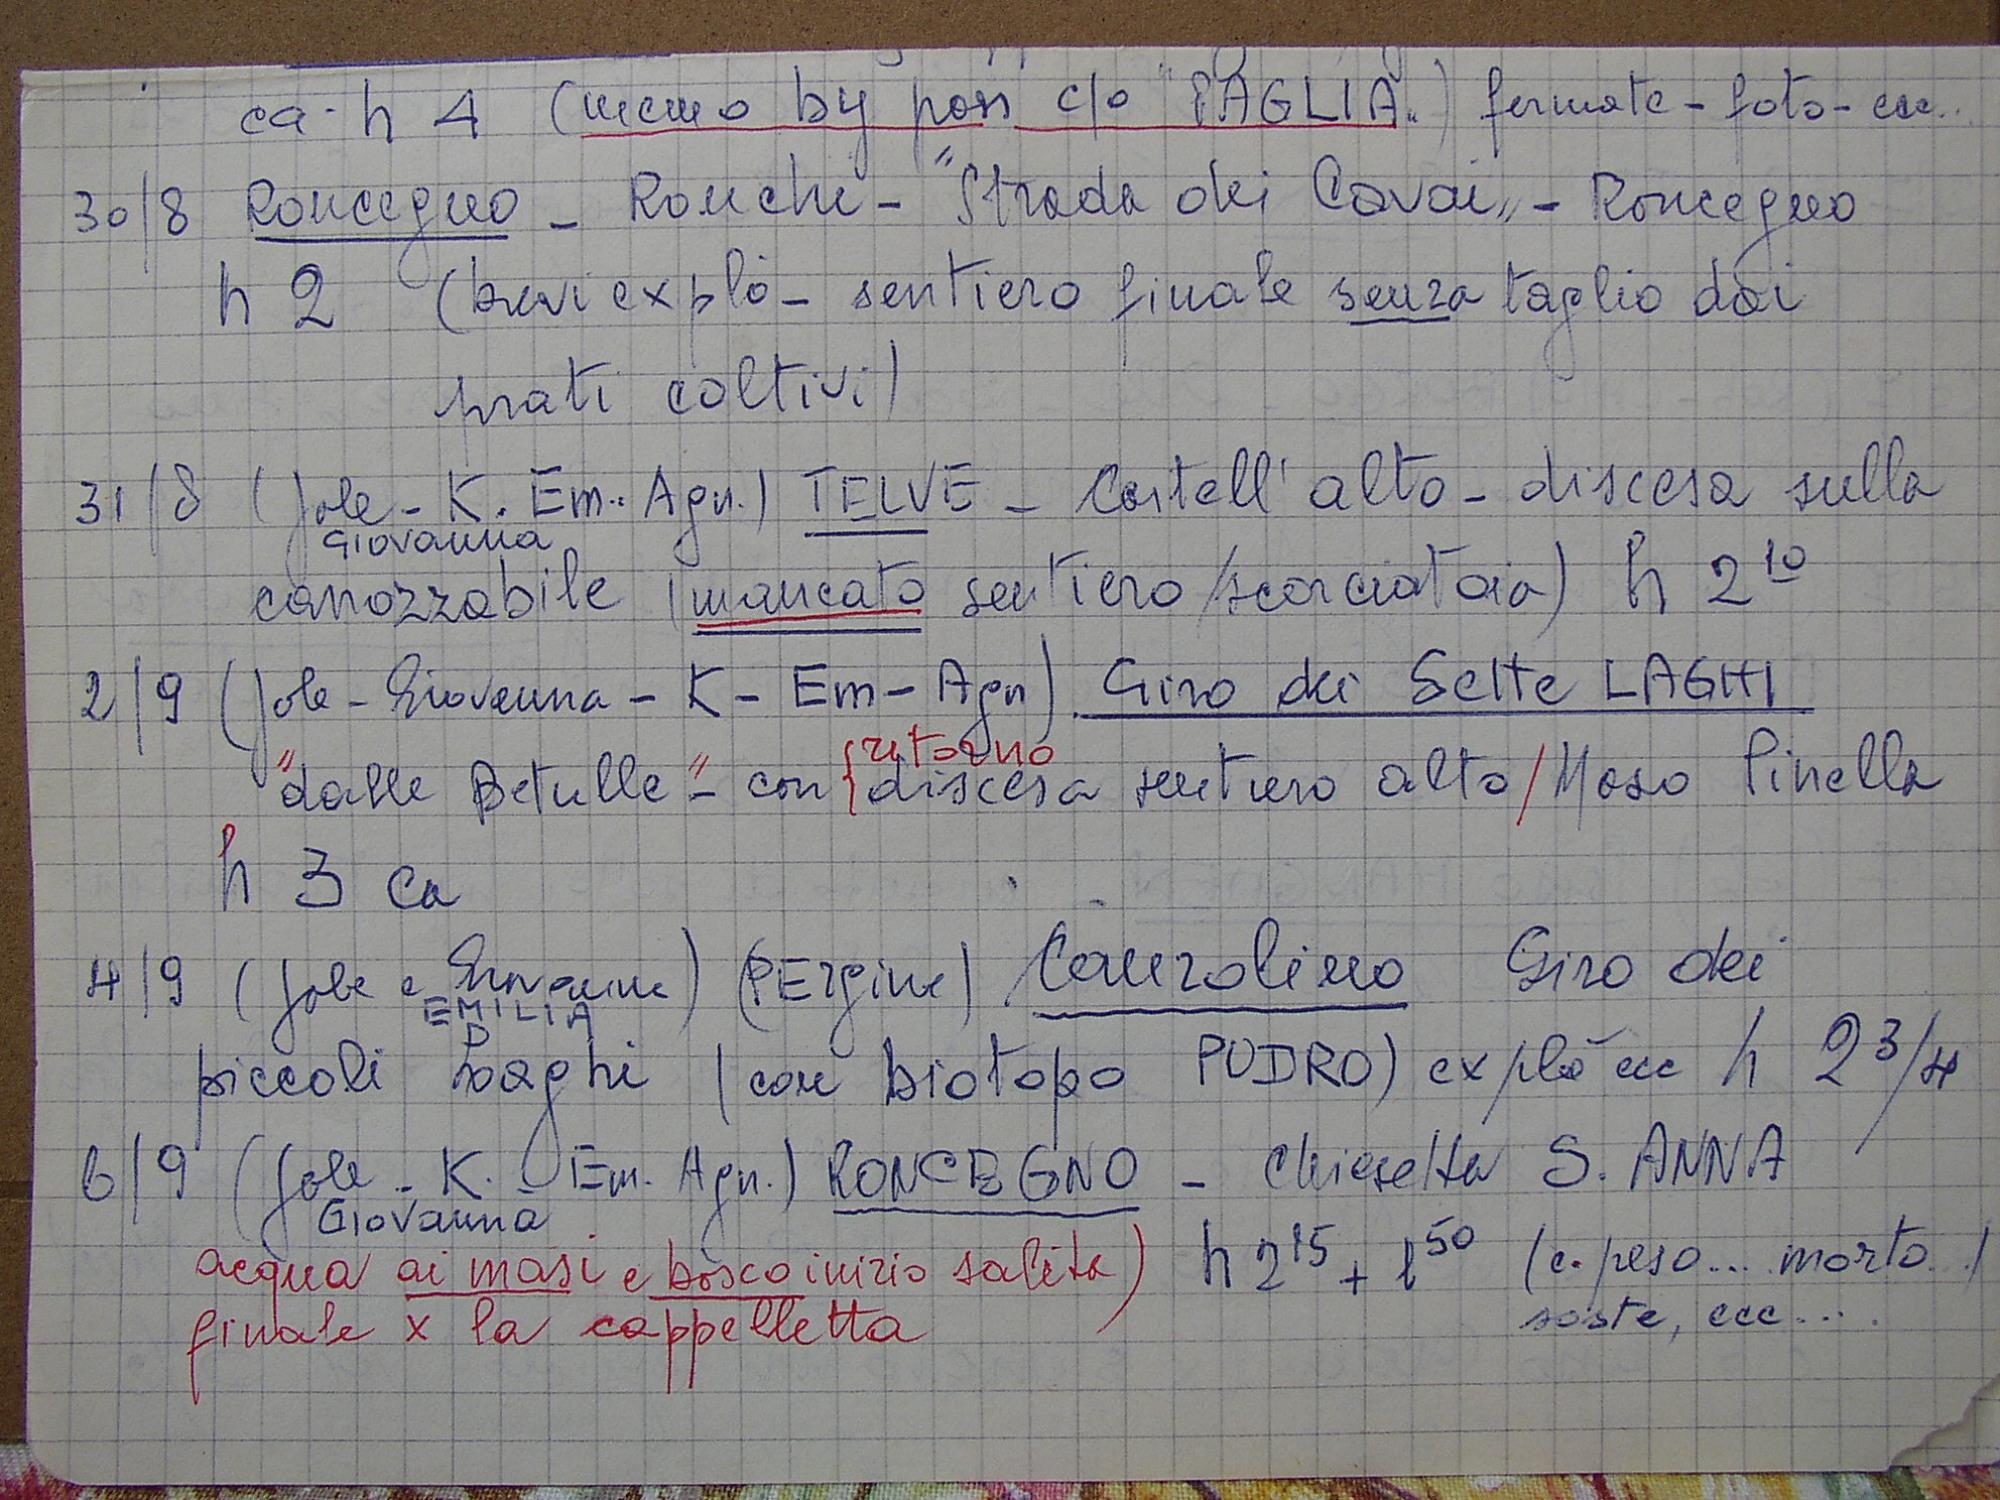 ca. h 4 (memo by pass c/o "PAGLIA") fermate - foto - ecc..
30/8 Roncegno - Ronchi - "Strada dei Cavai" - Roncegno
h 2 (brevi explò - sentiero finale senza taglio dai
prati coltivi)
31/8 (Jole - K. Em.. Agn.) TELVE - Castell'alto - discesa sulla
Giovanna
carrozzabile (mancato sentiero/scorciatoia) h 2 10
2/9 (Jole - Giovanna - K - Em - Agn) Giro dei Sette LAGHI
ritorno
"dalle Betulle" - con discesa sentiero alto/Maso Pinella
h 3 ca
4/9 (Jole e Giovanna) (PErgine) Canzolino Giro dei
EMILIA
piccoli Laghi (con biotopo PUDRO) explò ecc h 2 3/4
6/9 (Jole - K. - Em. Agn.) RONCEGNO - Chiesetta S. ANNA
Giovanna
acqua ai masi e bosco inizio salita) h 2 15 + 1 50 (c. peso... morto..)
finale x la cappelletta soste, ecc....